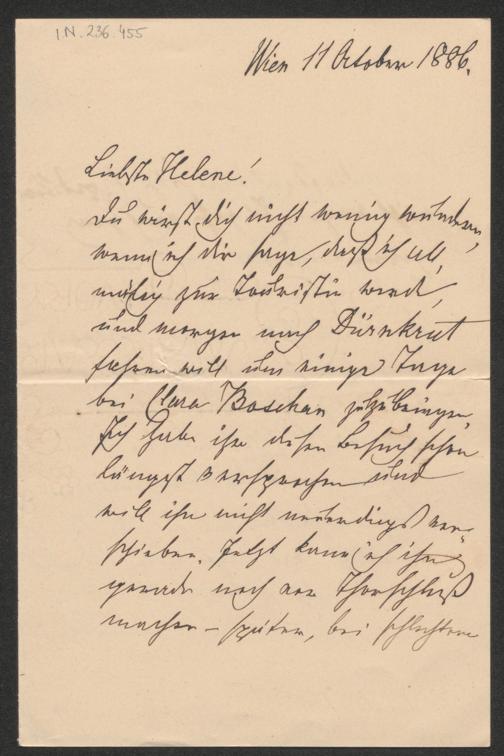 I.N. 236.455
Wien 11 October 1886.
Liebste Helene!
Du wirst dich nicht wenig wundern,
wenn ich dir sage, daß ich all
mälig zur Touristin werde,
und morgen nach Dürnkrut
fahren will um einige Tage
bei Clara Boschan zuzubringen.
Ich habe ihr diesen Besuch schon
längst versprochen und
will ihn nicht neuerdings ver-
schieben. Jetzt kann ich ihn
gerade noch vor Thorschluß
machen – später, bei schlechtem